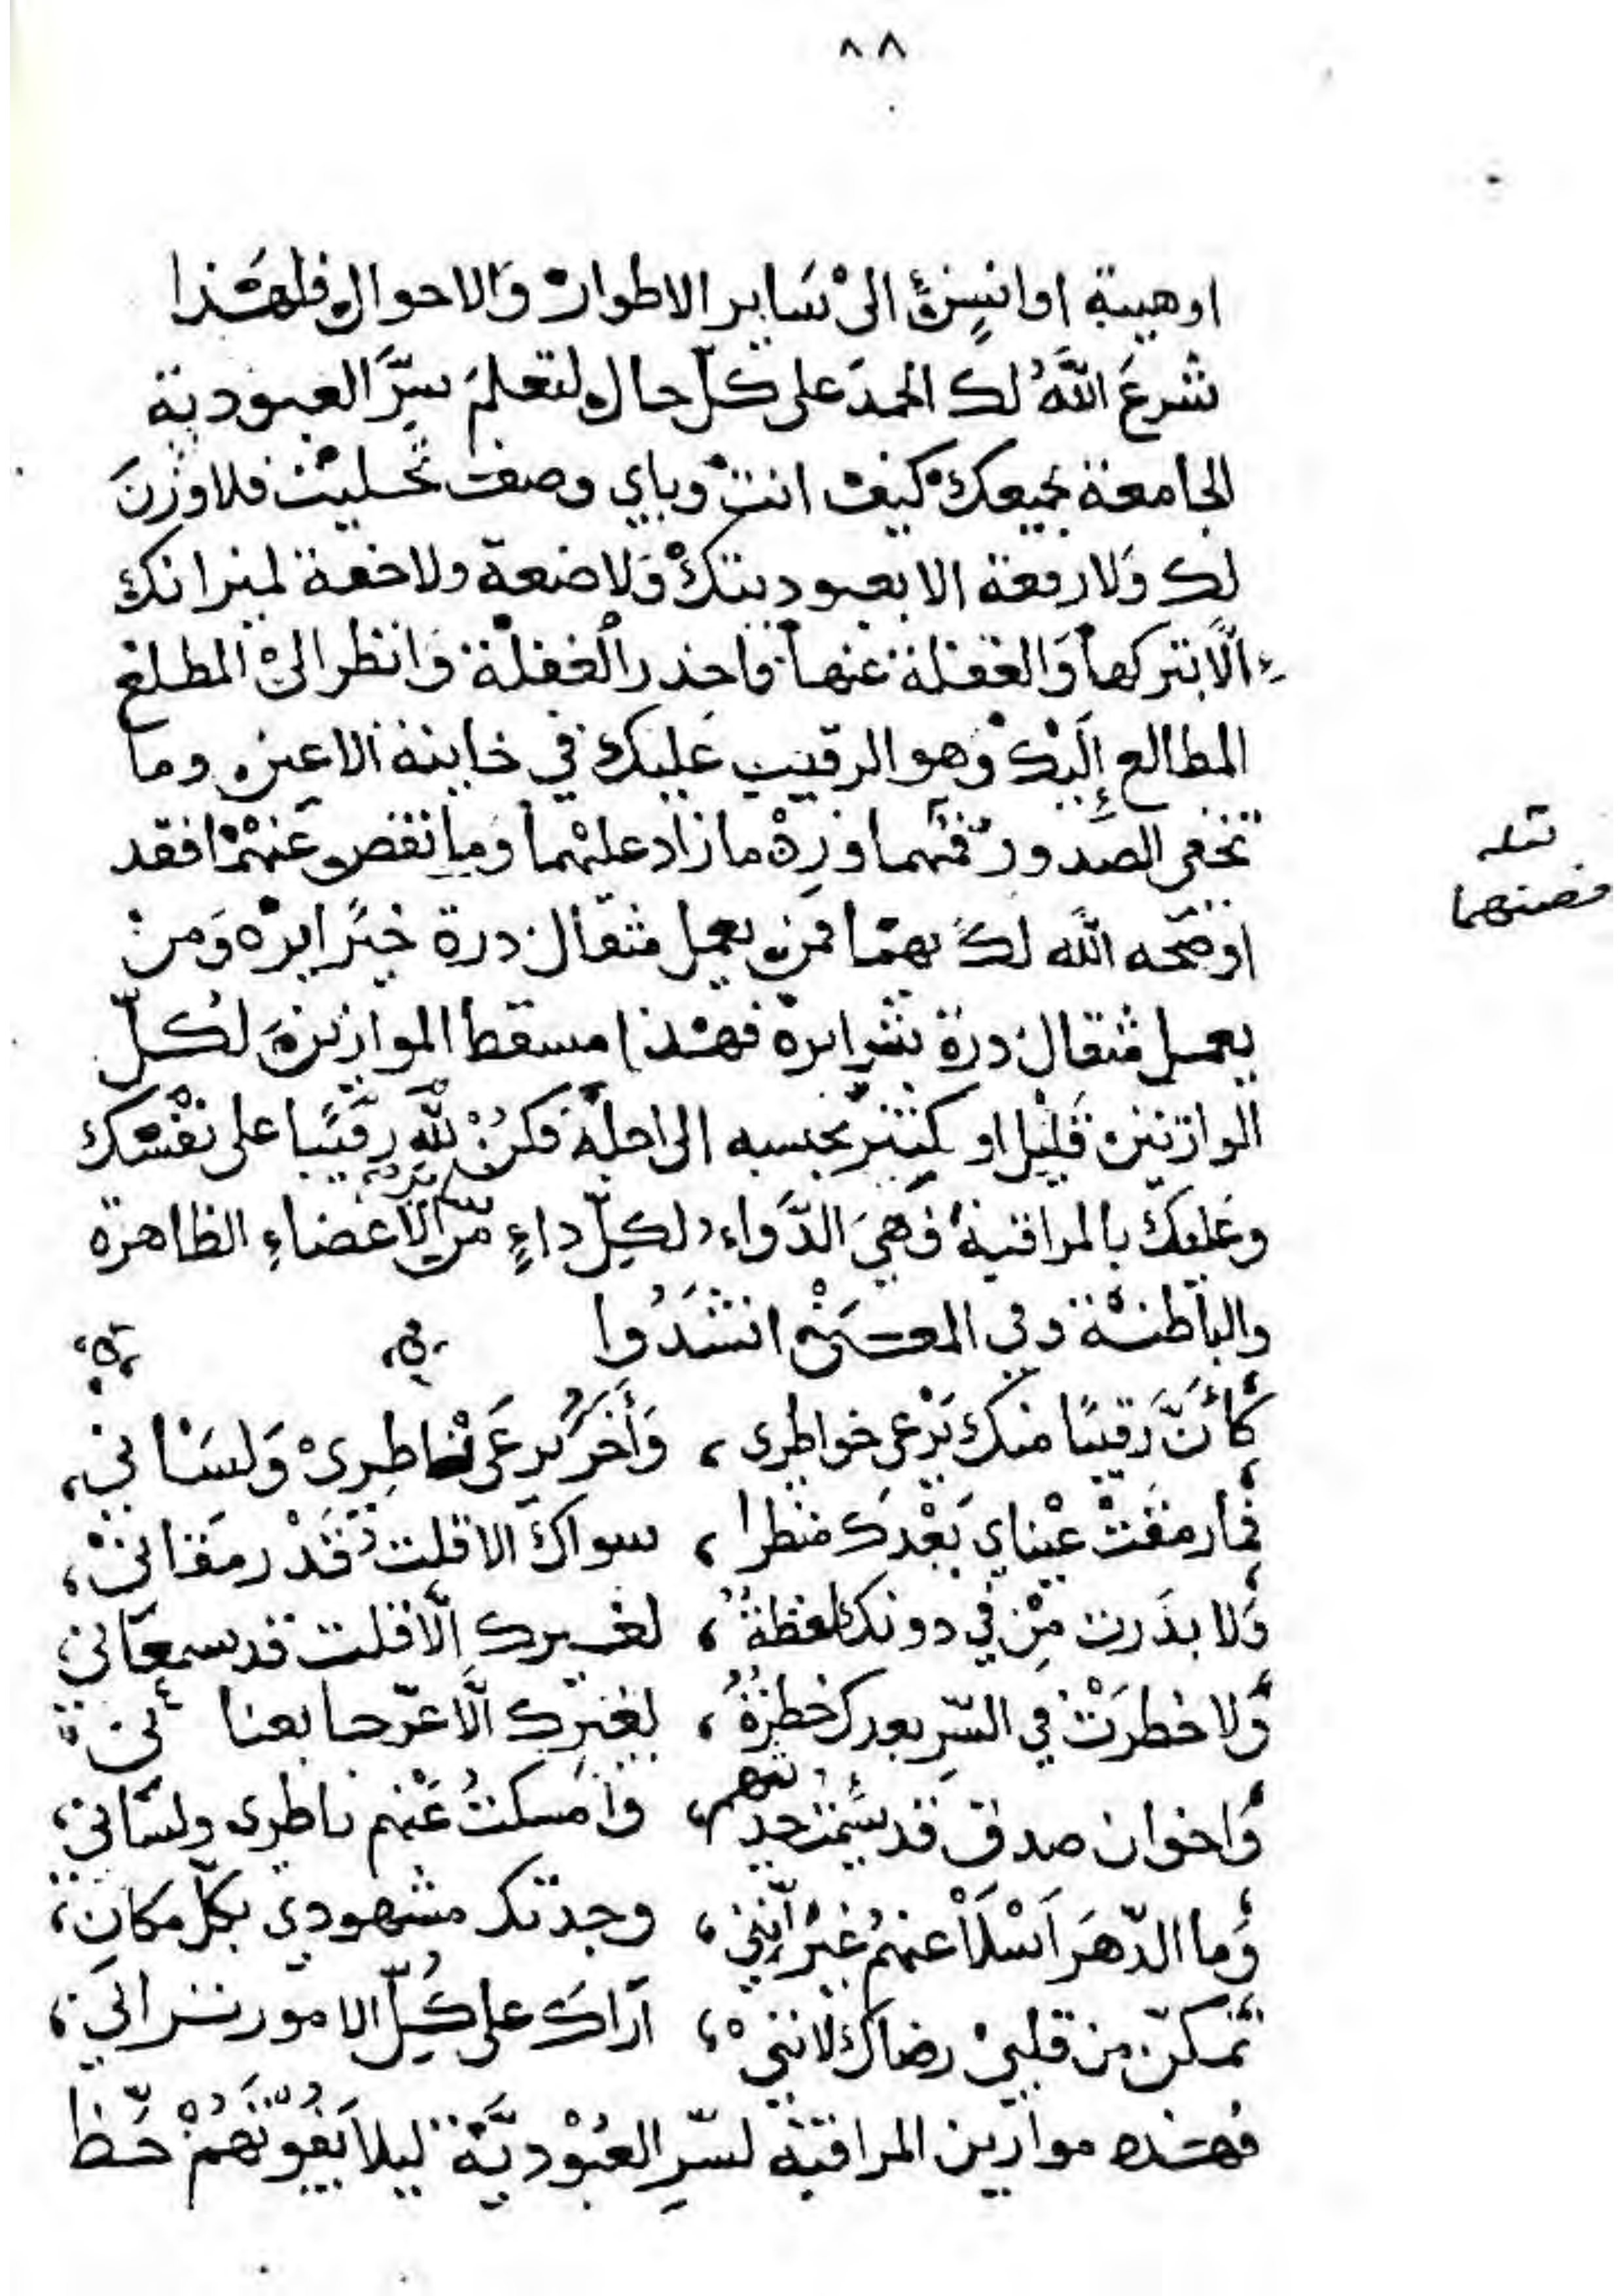 ٨٨
اوهيبة اوانسٍ الىْ سَاير الاطوار وَالاحوال فلهٰذا
شرعَ اللَّهُ لك الحمدَ على كلّ حال لتعلمَ سِرَّ العبودية
الجامعة بجميعك كيف انت وباي وصف تحليت فلا وزنَ
لك وَلا رفعة الا بعبوديتك وَلا ضعة ولا خفة لميزانك
الّا بتركها وَالغفلة عنها فاحذر الغفلة وَانظر الىْ المطلع
المطالع إِلَيْك وَهو الرقيب عَليك في خاينة الاعين وما
تخفى الصدور فمهما وزِنْ ما زاد عليهما وَما نقص عَنهمْا فقد
اوضحه اللَّه لك بهما فمن يعمل مثقال درة خيًرا يره وَمن
يعمل مثقال درة شرا يره فهٰذا مسقط الموازين لكلّ
الوازنين قليل او كثير بحسبه الى اجله فكنْ للَّهِ رقيبًا على نفسك
وعَليك بالمراقبة فَهيَ الدَّواء لكلّ داءٍ مّن الأعضاءِ الظاهرة
والباطنة وفي المعنىٰ انشَدُوا
كأَنَّ رَقيبًا منك يَرْعى خواطرى ، وَأَخَرُ يرعَى ناظِرِىْ وَلسَانِي ،
فما رمقَتْ عيْناي بَعْدكَ منظرا ، سواكَ الا قلت قَدْ رمَقانىْ ،
وَلا بدَرت مِنْ فيّ دونك لفظةٌ ، لغيرك الّا قلت قد سمعَانى
وَلا خطرَتْ في السّرِ بعدك خطرَةٌ ، لغيرِك الّا عرّجا بعنانى
وَاخوان صدقٍ قد سئمت حديثهم ، وَأمسكتُ عَنهم ناطرى ولسَانى ،
وَما الدّهرَ اَسْلاَ عنهمُ غيرَ انّني ، وجدتك مشهودي بكلّ مكانِ ،
تمكنّ من قلبىْ رضاك لانني ، آراكَ على كُلّ الامور ترانى ،
فهٰذه موازين المراقبة لسّرِ العبُوْديَّة ليلا يَفُوتَهُمْ حَظ